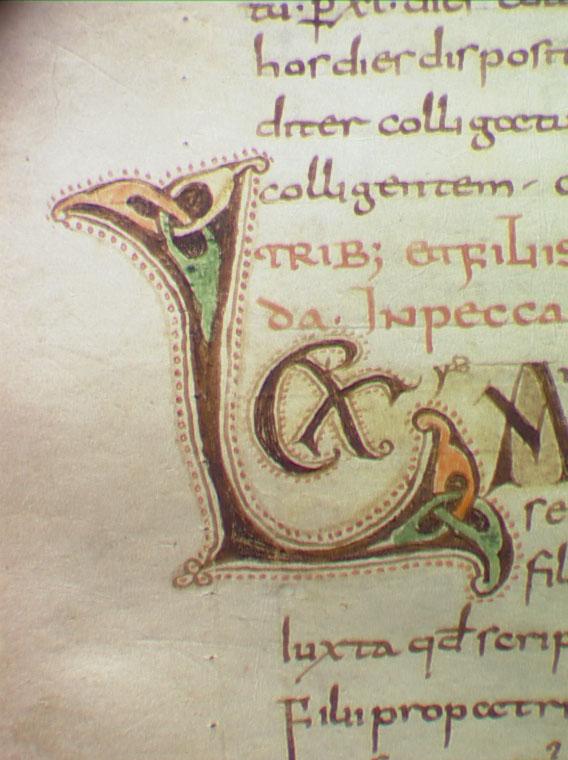 hor dier disposit
diter colligatu
colligentem
TRIB; et FILIIS
da. In pecca
LEX
se
fil
Iuxta qd scrip
Filii pro patri